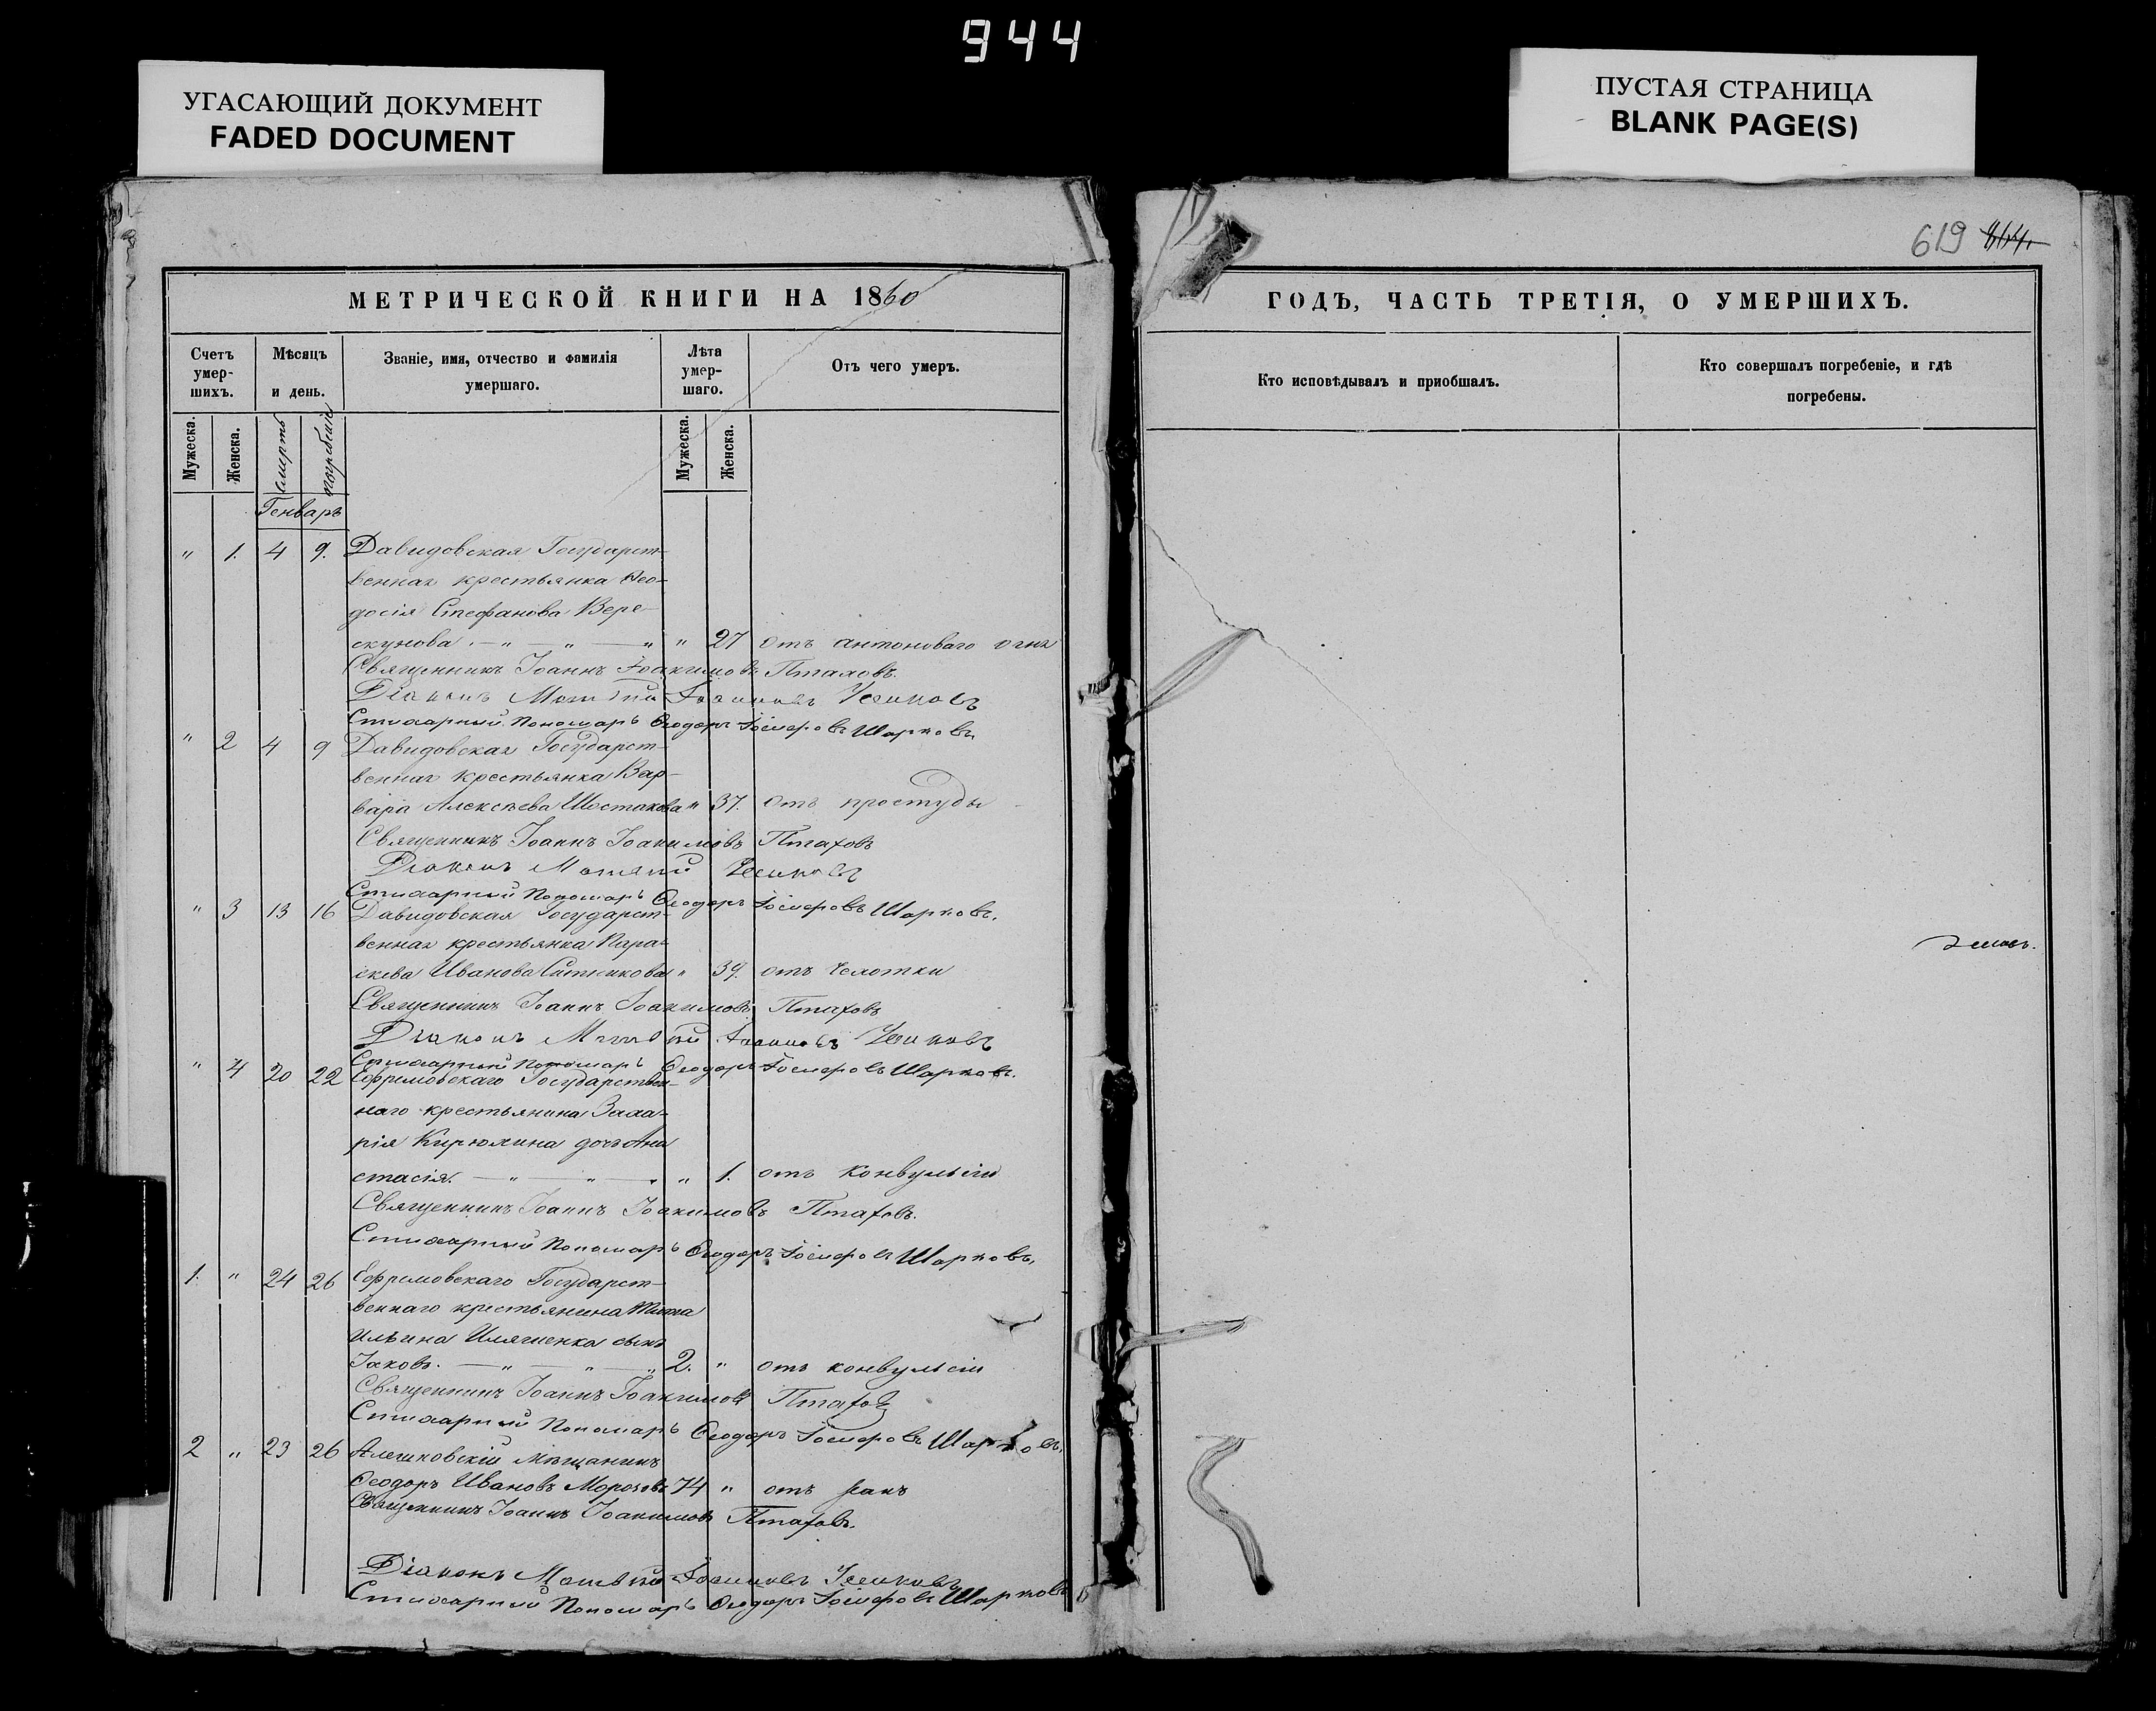 944
УГАСАЮЩИЙ ДОКУМЕНТ
FADED DOCUMENT
ПУСТАЯ СТРАНИЦА
BLANK PAGE(S)
619
МЕТРИЧЕСКОЙ КНИГИ НА 1860
Счетъ умер-шихъ.
Мѣсяцъ и день.
Званіе, имя, отчество и фамилія умершаго.
Лѣта умер-шаго.
Отъ чего умеръ.
Мужеска. Женска. смерть погребенія Мужеска. Женска.
Генварь
" 1. 4 9. Давидовская Государст-
венная крестьянка Ѳео-
досія Стефанова Вере-
скунова " 27 отъ антоноваго огня
Священникъ Іоаннъ Іоакимовъ Птаховъ.
Діаконъ
Стихарный Пономарь Ѳеодоръ Іосифовъ Шарковъ.
" 2 4 9 Давидовская Государст-
венная крестьянка Вар-
вара Алексѣева Шостакова " 37. отъ простуды
Священникъ Іоаннъ Іоакимовъ Птаховъ
Діаконъ
Стихарный Пономарь Ѳеодоръ Іосифовъ Шарковъ.
" 3 13 16 Давидовская Государст-
венная крестьянка Пара-
скева Иванова Ситникова " 39. отъ чахотки
Священникъ Іоаннъ Іоакимовъ Птаховъ
Діаконъ
Стихарный Пономарь Ѳеодоръ Іосифовъ Шарковъ.
" 4 20 22 Ефремовскаго Государствен-
наго крестьянина Заха-
рія Кирюхина дочь Ана
стасія. " 1. отъ конвульсіи
Священникъ Іоаннъ Іоакимовъ Птаховъ.
Стихарный Пономарь Ѳеодоръ Іосифовъ Шарковъ.
1. " 24 26 Ефремовскаго Государст-
веннаго крестьянина
Ильина сынъ
Іаковъ. 2. " отъ конвульсіи
Священникъ Іоаннъ Іоакимовъ Птаховъ
Стихарный Пономарь Ѳеодоръ Іосифовъ Шарковъ.
2 " 23 26 Алешковскій мѣщанинъ
Ѳеодоръ Ивановъ Морозовъ 74 " отъ ранъ
Священникъ Іоаннъ Іоакимовъ Птаховъ.
Діаконъ
Стихарный Пономарь Ѳеодоръ Іосифовъ Шарковъ
ГОДЪ, ЧАСТЬ ТРЕТІЯ, О УМЕРШИХЪ.
Кто исповѣдывалъ и пріобщалъ.
Кто совершалъ погребеніе, и гдѣ погребены.